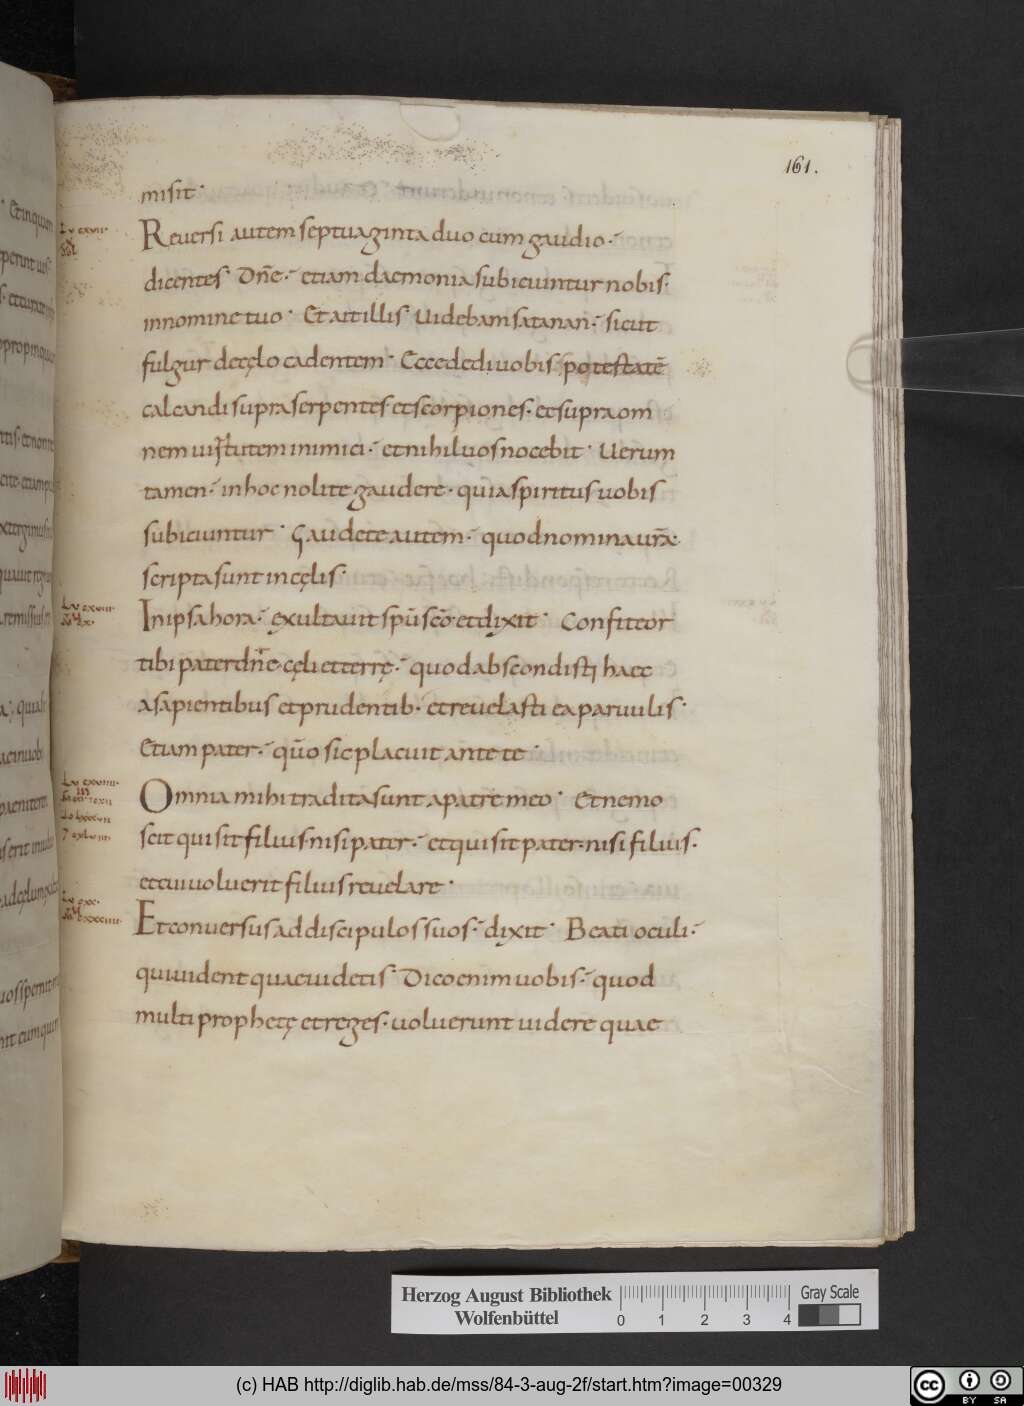 161.
misit·
Reuersi autem septuaginta duo cum gaudio·
dicentes· Dn̄e· etiam daemonia subiciuntur nobis·
in nomine tuo· Et ait illis· Uidebam satanan· sicut
fulgur de cęlo cadentem· Ecce dedi uobis potestatē
calcandi supra serpentes· et scorpiones· et supra om
nem uirtutem inimici· et nihil uos nocebit· Uerum
tamen· in hoc nolite gaudere· quia spiritus uobis
subiciuntur· Gaudete autem· quod nomina ur̄a·
scripta sunt in cęlis·
In ipsa hora· exultauit spū scō· et dixit· Confiteor
tibi pater dn̄e· cęli et terrę· quod abscondisti haec
a sapientibus et prudentib· et reuelasti ea paruulis·
Etiam pater· qūo sic placuit ante te·
Omnia mihi tradita sunt a patre meo· Et nemo
scit qui sit filius· nisi pater· et qui sit pater· nisi filius·
et cui uoluerit filius reuelare·
Et conuersus ad discipulos suos· dixit· Beati oculi·
qui uident quae uidetis· Dico enim uobis· quod
multi prophetę et reges· uoluerunt uidere quae
Herzog August Bibliothek
Wolfenbüttel
0 1 2 3 4
Gray Scale
(c) HAB http://diglib.hab.de/mss/84-3-aug-2f/start.htm?image=00329
cc BY SA